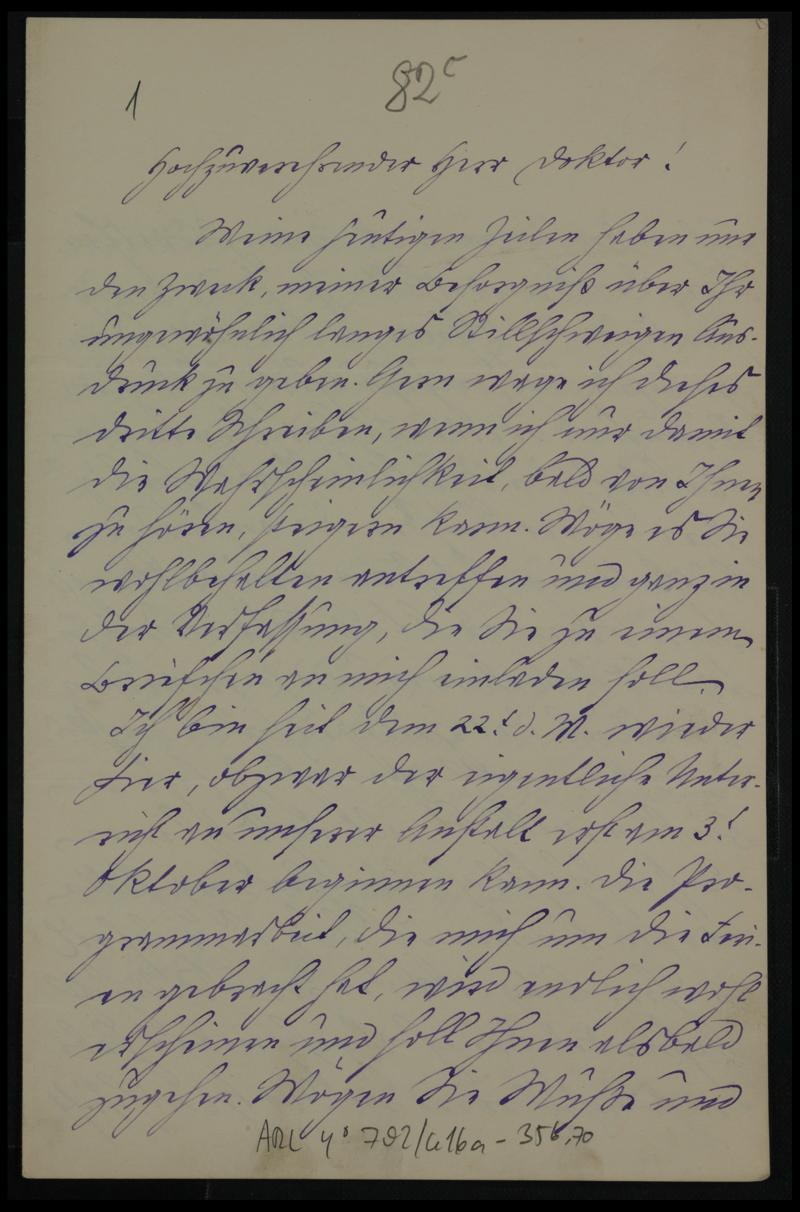 1
82c
Hochzuverehrender Herr Doktor!
Meine heutigen Zeilen haben nur
den Zweck, meiner Besorgniß über Ihr
ungewöhnlich langes Stillschweigen Aus-
druck zu geben. Gern wage ich dieses
dritte Schreiben, wenn ich nur damit
die Wahrscheinlichkeit, bald von Ihnen
zu hören, steigern kann. Möge es Sie
wohlbehalten antreffen und ganz in
der Verfassung, die Sie zu einem
Briefchen an mich einladen soll.
Ich bin seit dem 22t. d. M. wieder
hier, obzwar der eigentliche Unter-
richt an unserer Anstalt erst am 3t.
Oktober beginnen kann. Die Pro-
grammarbeit, die mich um die Feri-
en gebracht hat, wird endlich wohl
erscheinen und soll Ihnen alsbald
zugehen. Mögen Sie Muße und